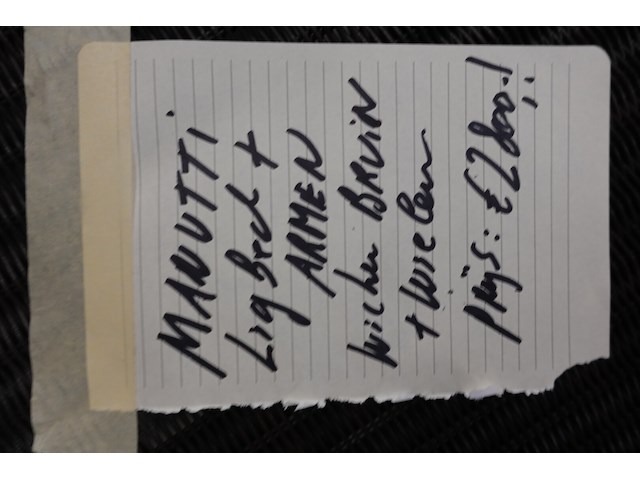 MANUTTI
Ligbed +
ARMEN
Wicker BRUIN
+ Wielen
PRijs: € 2800.!